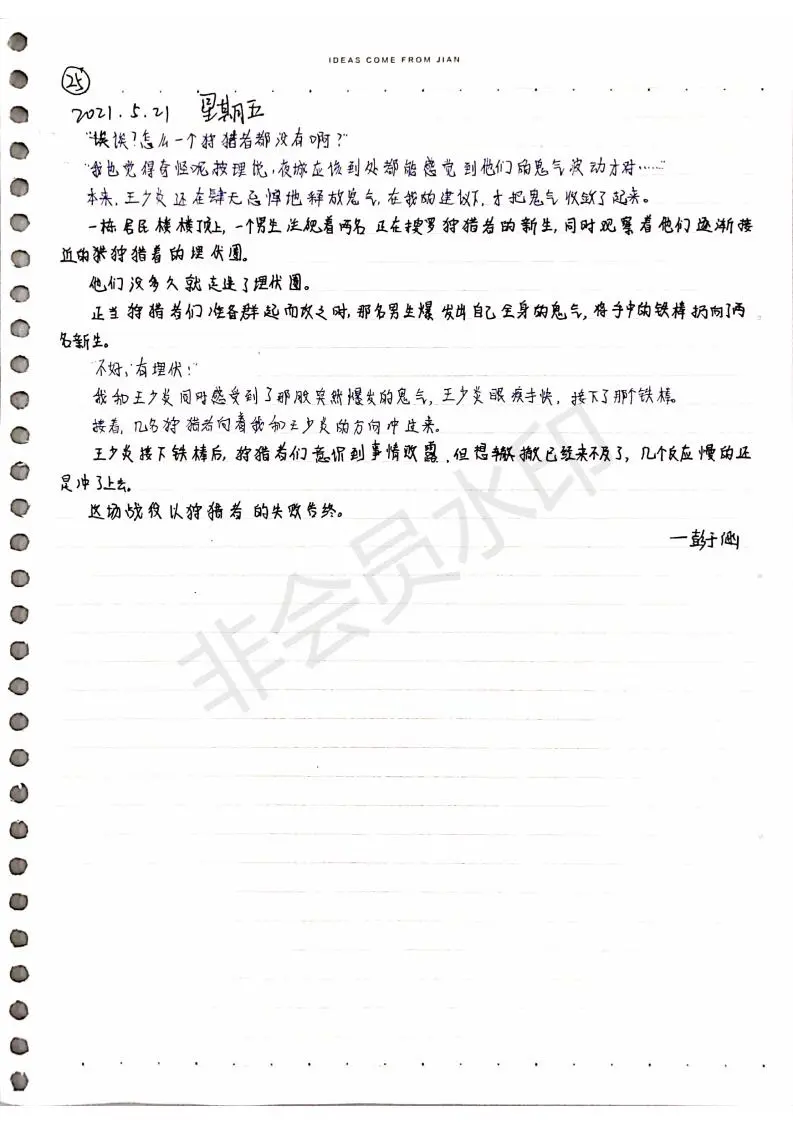 IDEAS COME FROM JIAN
25
2021.5.21 星期五
"诶诶?怎么一个狩猎者都没有啊?"
"我也觉得奇怪呢按理说,夜城应该到处都能感觉到他们的鬼气波动才对……"
本来,王少炎还在肆无忌惮地释放鬼气,在我的建议下,才把鬼气收敛了起来。
一栋居民楼楼顶上,一个男生注视着两名正在搜罗狩猎者的新生,同时观察着他们逐渐接
近的狩猎者的埋伏圈。
他们没多久就走进了埋伏圈。
正当狩猎者们准备群起而攻之时,那名男生爆发出自己全身的鬼气,将手中的铁棒扔向了两
名新生。
"不好,有埋伏!"
我和王少炎同时感受到了那股突然爆发的鬼气,王少炎眼疾手快,接下了那个铁棒。
接着,几名狩猎者向着我和王少炎的方向冲过来。
王少炎接下铁棒后,狩猎者们意识到事情败露,但想撤已经来不及了,几个反应慢的还
是冲了上去。
这场战役以狩猎者的失败告终。
—彭于
非会员水印